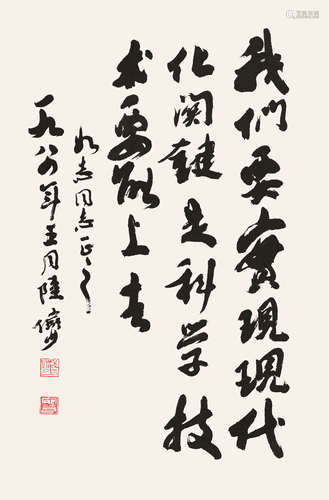 我們要實現現代
化関鍵是科学技
术要能上去
志同志正之
一九八年五月陸儼少